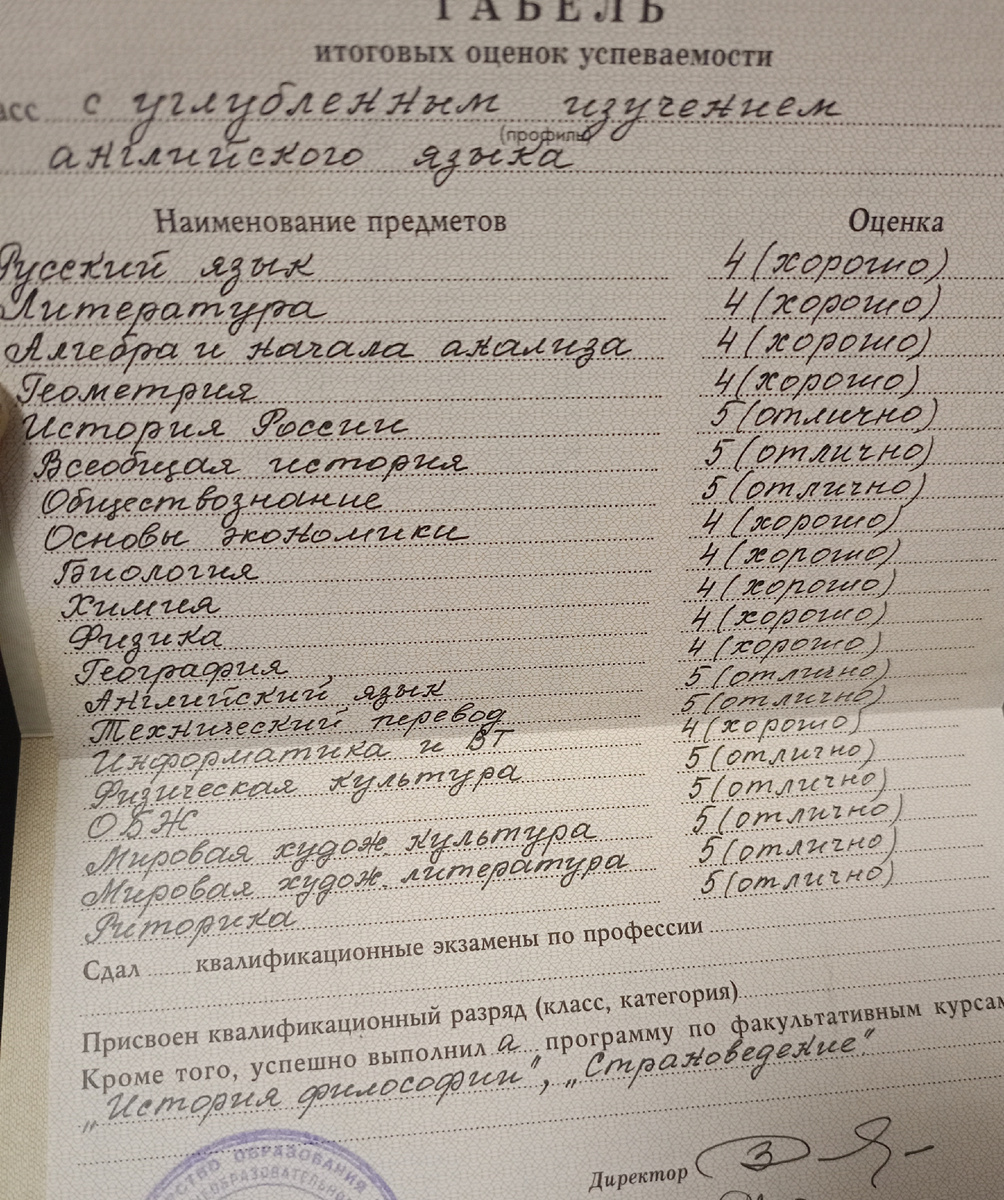 ТАБЕЛЬ
итоговых оценок успеваемости
асс с углубленным изучением
(профиль)
английского языка
Наименование предметов Оценка
Русский язык 4 (хорошо)
Литература 4 (хорошо)
Алгебра и начала анализа 4 (хорошо)
Геометрия 4 (хорошо)
История России 5 (отлично)
Всеобщая история 5 (отлично)
Обществознание 5 (отлично)
Основы экономики 4 (хорошо)
Биология 4 (хорошо)
Химия 4 (хорошо)
Физика 4 (хорошо)
География 4 (хорошо)
Английский язык 5 (отлично)
Технический перевод 5 (отлично)
Информатика и ВТ 4 (хорошо)
Физическая культура 5 (отлично)
ОБЖ 5 (отлично)
Мировая худож. культура 5 (отлично)
Мировая худож. литература 5 (отлично)
Риторика 5 (отлично)
Сдал квалификационные экзамены по профессии
Присвоен квалификационный разряд (класс, категория)
Кроме того, успешно выполнила программу по факультативным курсам
„История философии", „Страноведение"
СТВО ОБРАЗОВАНИЯ
ОБРАЗОВАТЕЛЬНО
Директор